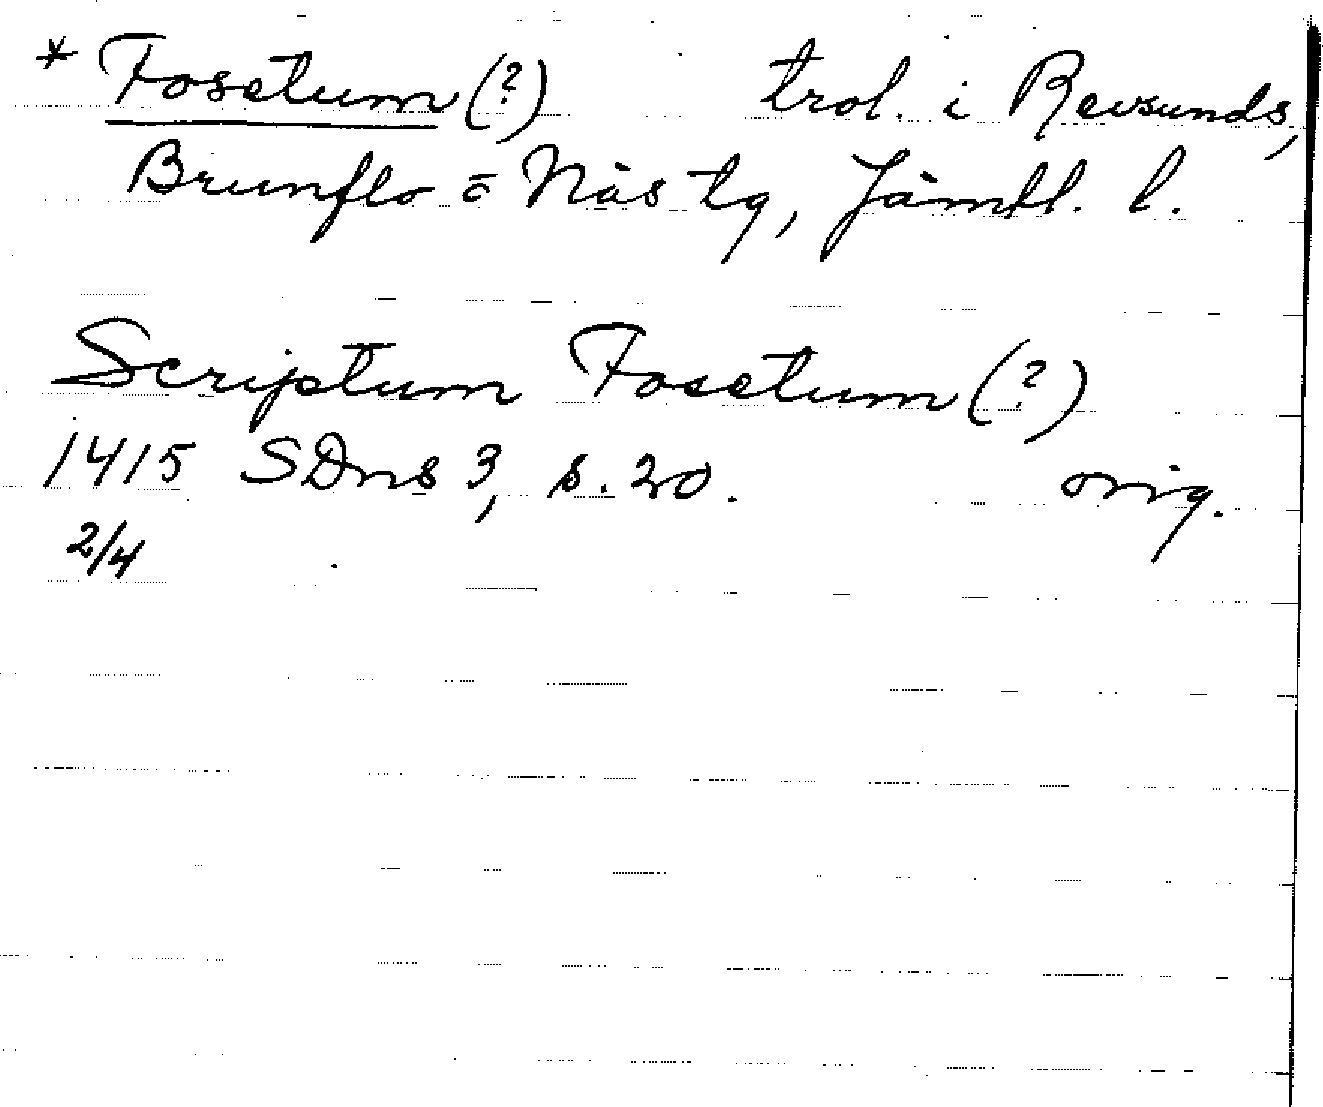 * Fosetum (?) trol. i Revsunds,
Brunflo o Näs tg, Jämtl. l.
Scriptum Fosetum (?)
1415 SDns 3, s. 20. orig.
2/4